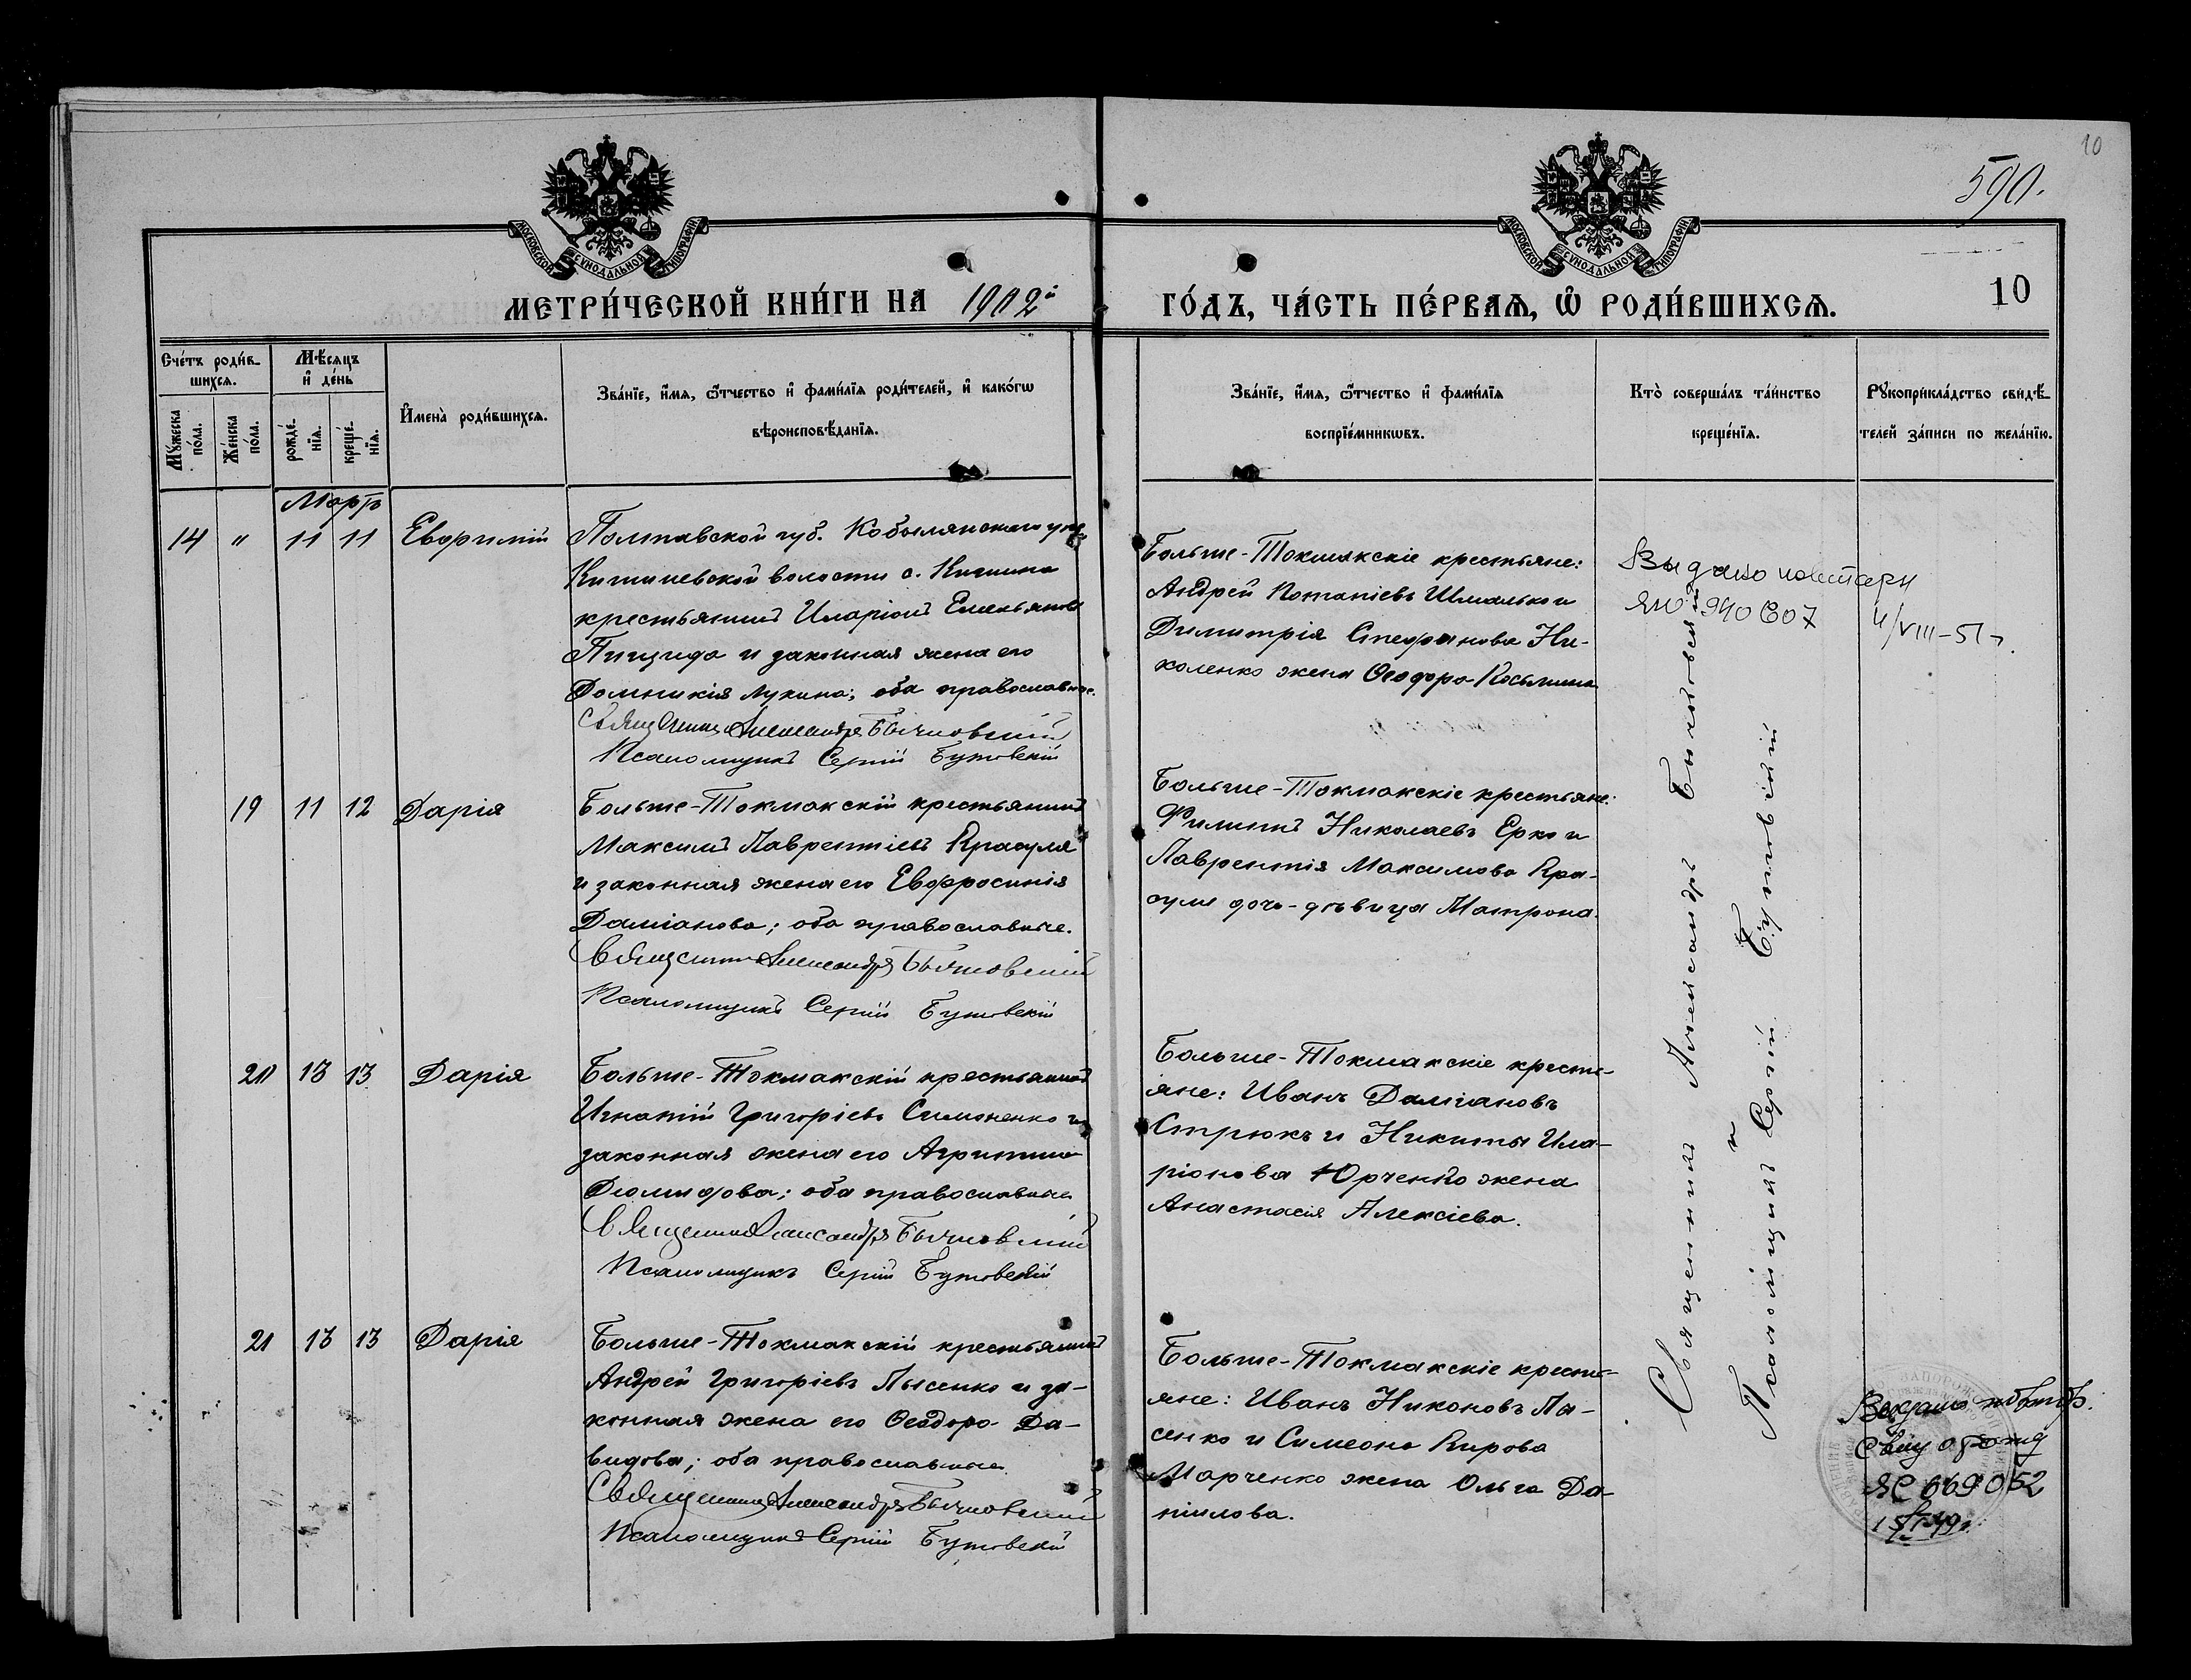 10
590.
МОСКОВСКОЙ СѴНОДАЛЬНОЙ ТИПОГРАФІИ
МОСКОВСКОЙ СѴНОДАЛЬНОЙ ТИПОГРАФІИ
МЕТРИ́ЧЕСКОЙ КНИ́ГИ НА 1902й
ГО́ДЪ, ЧА́СТЬ ПЕ́РВАѦ, Ѡ҆ РОДИ́ВШИХСѦ.
10
Сче́тъ роди́в-
шихсѧ.
Мѣ́сѧцъ
и҆ де́нь
Мꙋ́жеска
по́ла.
Же́нска
по́ла.
рожде́-
нїѧ.
креще́-
нїѧ.
И҆мена̀ роди́вшихсѧ.
Зва́нїе, и҆́мѧ, ѻ҆́тчество и҆ фами́лїѧ роди́телей, и҆ како́гѡ
вѣроисповѣ́данїѧ.
Зва́нїе, и҆́мѧ, ѻ҆́тчество и҆ фами́лїѧ
воспрїе́мникѡвъ.
Кто̀ соверша́лъ та́инство
креще́нїѧ.
Рꙋкоприкла́дство свидѣ́-
телей за́писи по жела́нїю.
Мартъ
14 " 11 11 Евфимій
Полтавской губ. Кобелякскаго уѣз.
Кишинской волости с. Кишинка
крестьянинъ Иларіонъ Емельяновъ
и законная жена его
Домникія Лукина; оба православные.
Священникъ Александръ Бычковскій
Псаломщикъ Сергій Бутовскій
Больше-Токмакскіе крестьяне:
Андрей Потапіевъ Шмалько и
Димитрія Стефанова Ни-
коленко жена Ѳеодора Косьмина
Выдано повторн
ЯЮ 940607
11/VIII-51 г.
19 11 12 Дарія
Больше-Токмакскій крестьянинъ
Максимъ Лаврентіевъ Красуля
и законная жена его Евфросинія
Даміанова; оба православные.
Священникъ Александръ Бычковскій
Псаломщикъ Сергій Бутовскій
Больше-Токмакскіе крестьяне:
Филиппъ Николаевъ Ерко и
Лаврентія Максимова Кра-
сули дочь-дѣвица Матрона.
20 13 13 Дарія
Больше-Токмакскій крестьянинъ
Игнатій Григоріевъ Симоненко и
законная жена его Агриппина
Діомидова; оба православные
Священникъ Александръ Бычковскій
Псаломщикъ Сергій Бутовскій
Больше-Токмакскіе кресть-
яне: Иванъ Даміановъ
Стрюкъ и Никиты Ила-
ріонова Юрченко жена
Анастасія Алексіева.
21 13 13 Дарія
Больше-Токмакскій крестьянинъ
Андрей Григоріевъ Лысенко и за-
конная жена его Ѳеодора Да-
видова; оба православные.
Священникъ Александръ Бычковскій
Псаломщикъ Сергій Бутовскій
Больше-Токмакскіе кресть-
яне: Иванъ Никоновъ Лы-
сенко и Симеона Кирова
Марченко жена Ольга Да-
ніилова.
Священникъ Александръ Бычковскій
и
Псаломщикъ Сергій Бутовскій
Выдано повторн.
Свид о рожд
ЯС 669052